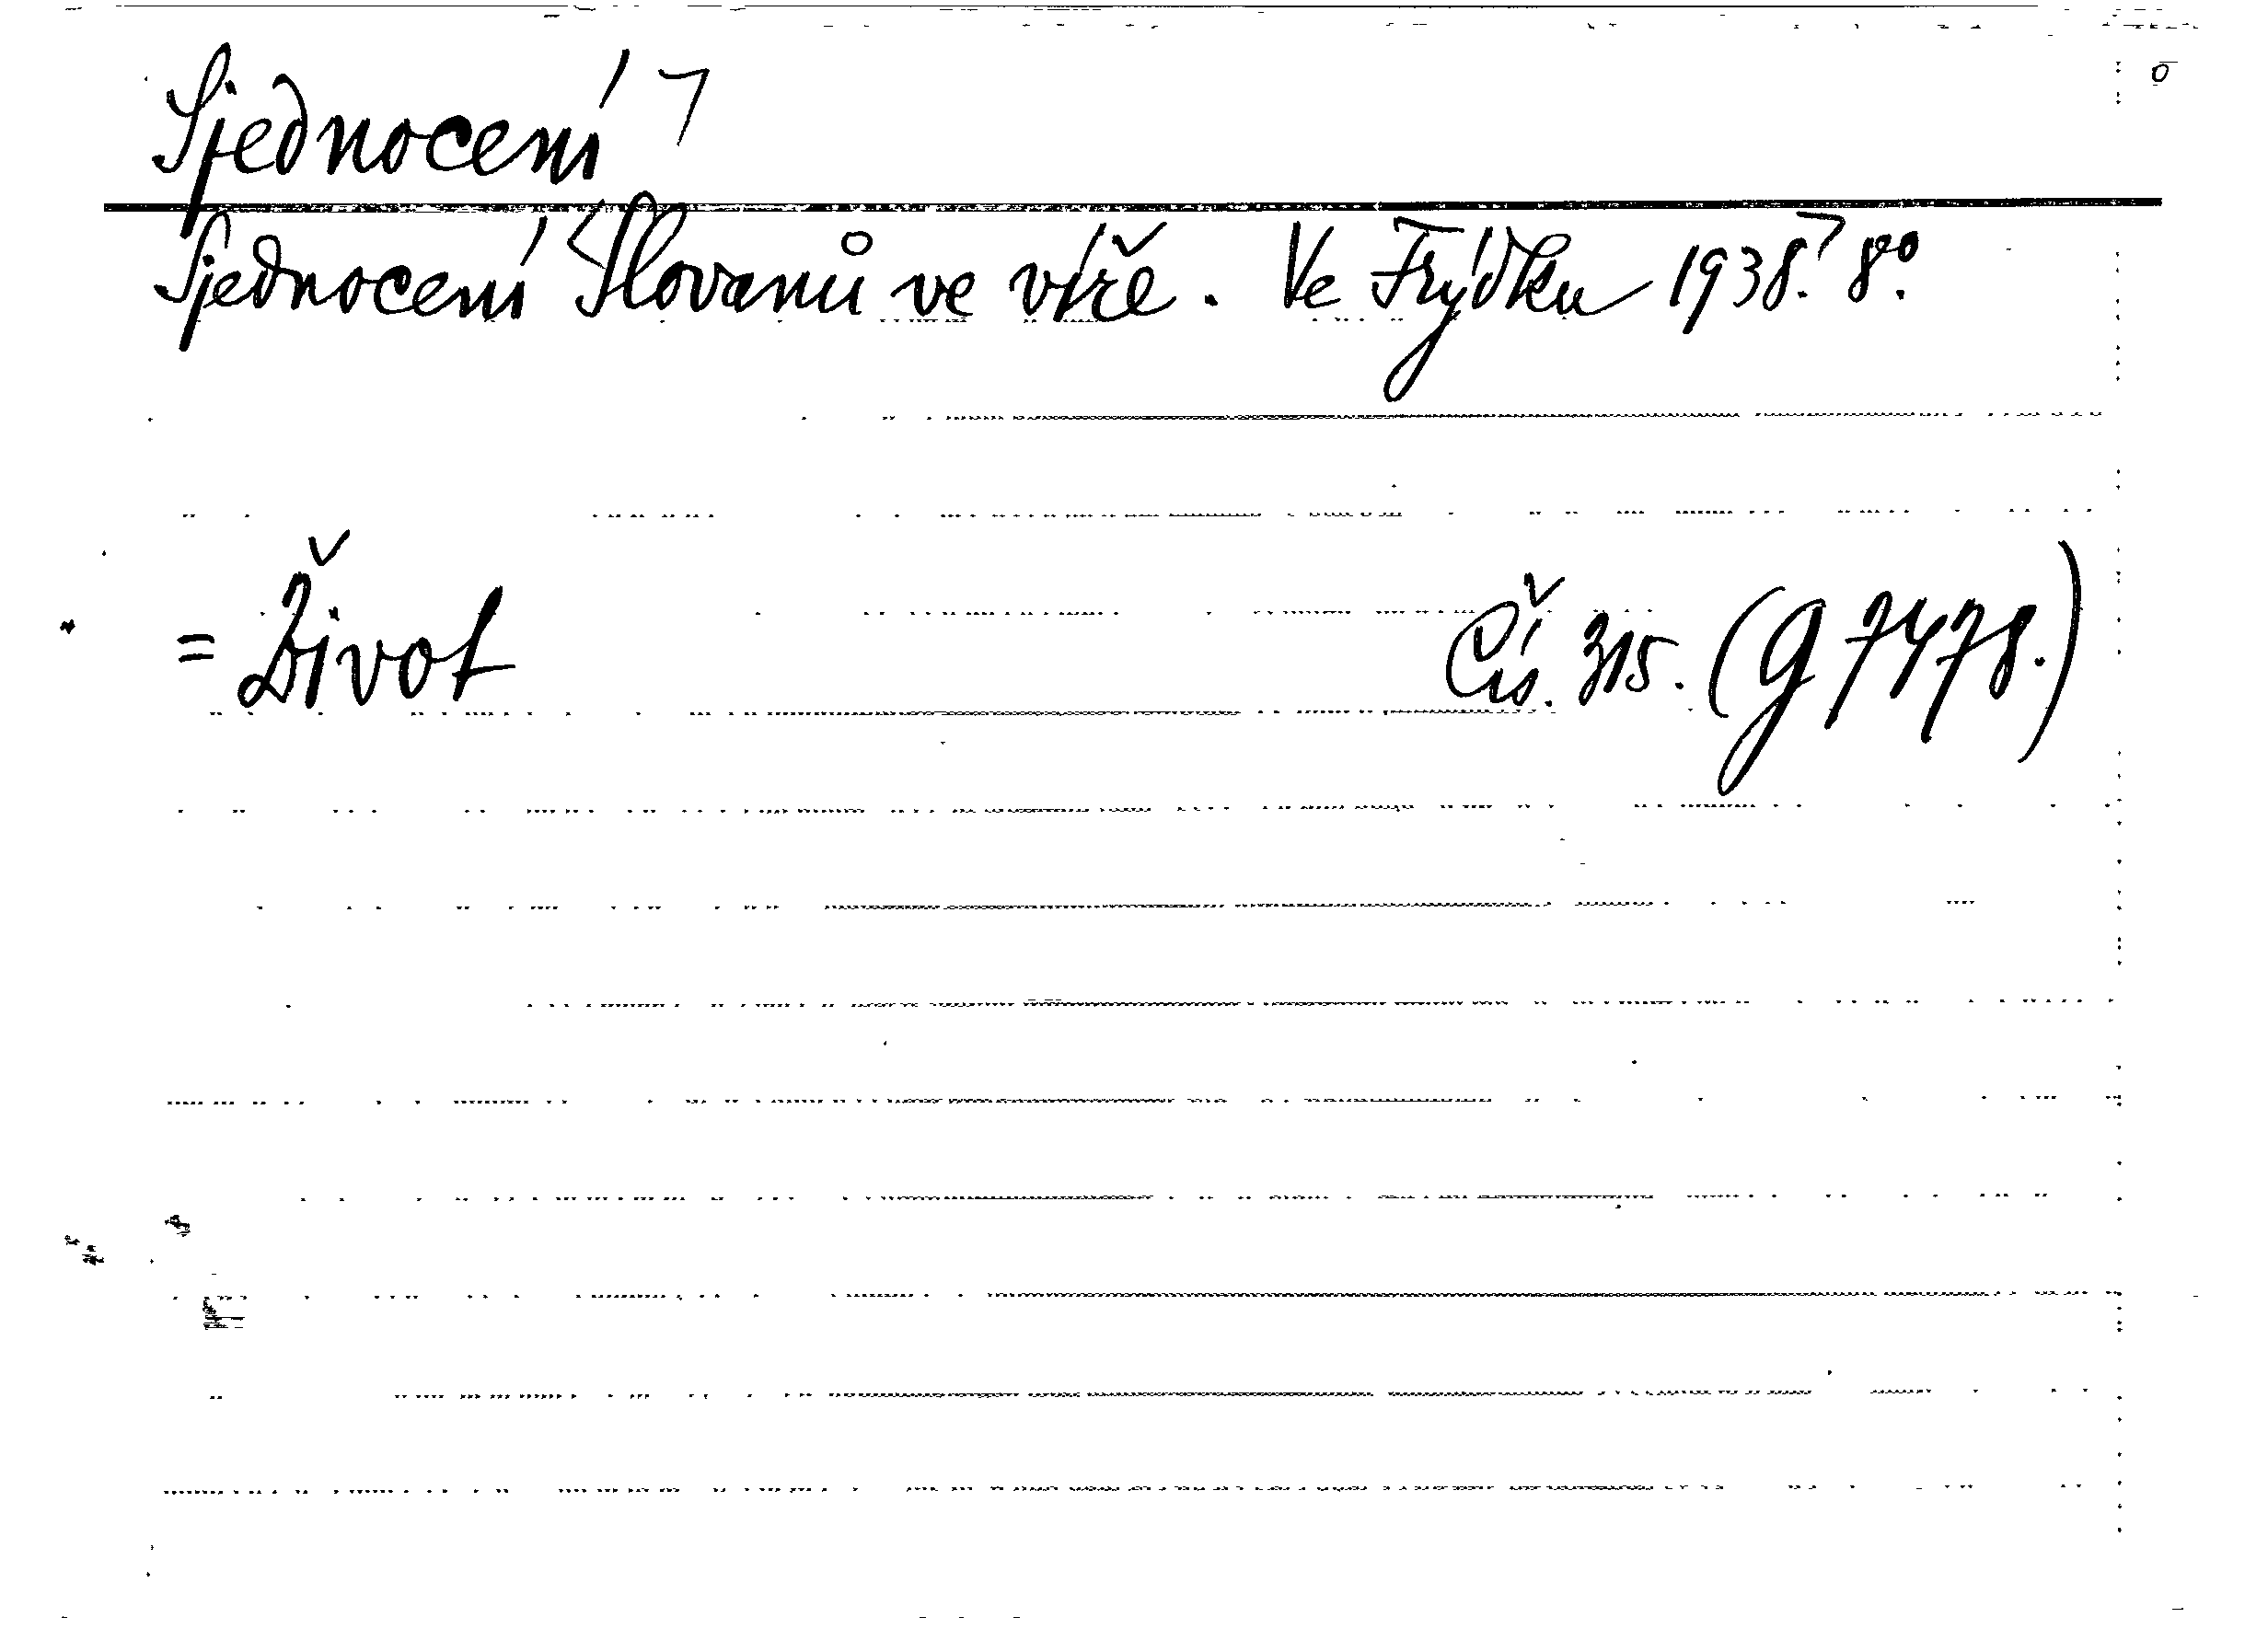 Sjednocení ㄱ
Sjednocení Slovanů ve víře. Ve Frýdku 1938. 8°.
= Život Čís. 315. (G 7478.)